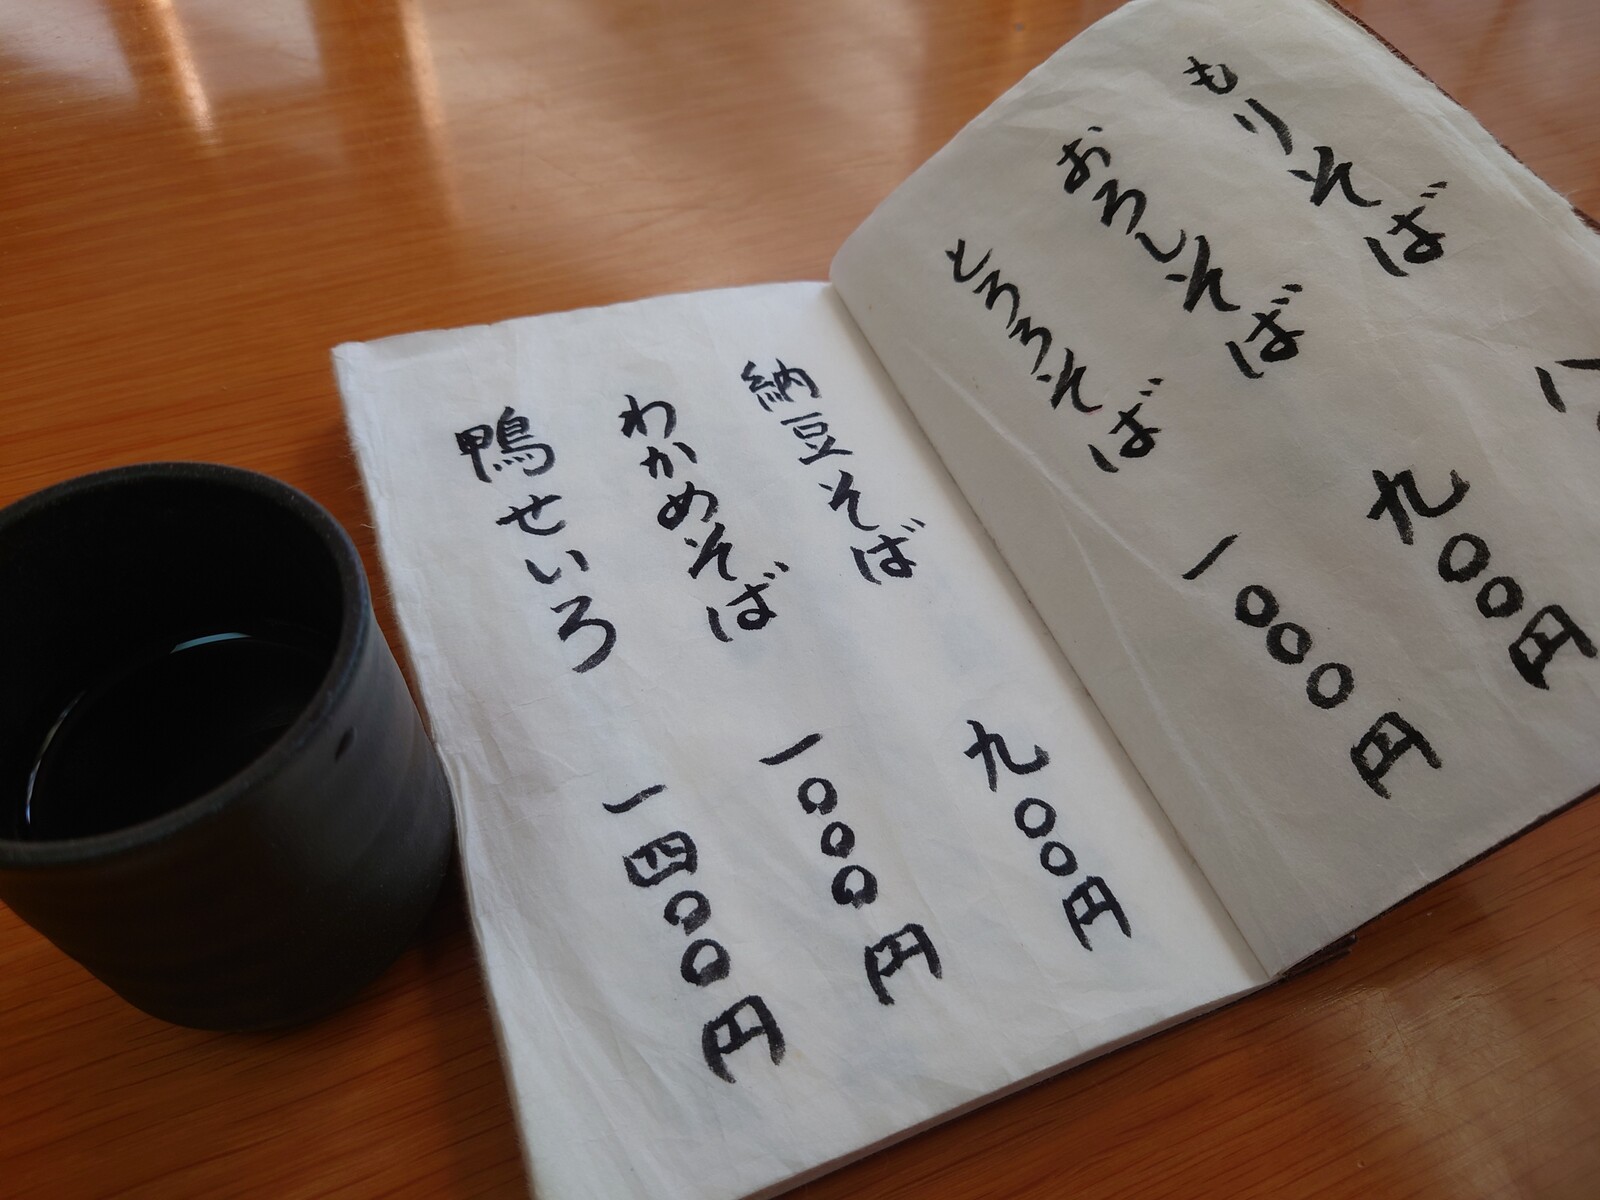 もりそば 八
おろしそば 九〇〇円
とろろそば 一〇〇〇円
納豆そば 九〇〇円
わかめそば 一〇〇〇円
鴨せいろ 一四〇〇円